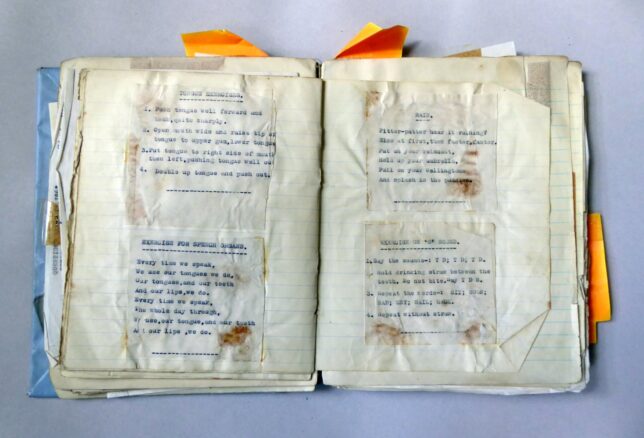 TONGUE EXERCISES.
1. Push tongue well forward and
back, quite sharply.
2. Open mouth wide and raise tip of
tongue to upper gum, lower tongue
3. Put tongue to right side of mouth
then left, pushing tongue well out
4. Double up tongue and push out.
EXERCISE FOR SPEECH ORGANS.
Every time we speak,
We use our tongues we do,
Our tongues, and our teeth
And our lips, we do.
Every time we speak,
The whole day through,
We use, our tongue, and our teeth
And our lips , we do.
RAIN.
Pitter-patter hear it raining?
Slow at first, then faster, faster.
Put on your raincoat,
Hold up your umbrella,
Pull on your wellingtons,
And splash in the puddles.
EXERCISE ON "S" SOUND.
1. Say the sounds- T D; T D; T D.
2. Hold drinking straw between the
teeth. Do not bite. Say T D S.
3. Repeat the words- SIT;
SAIL;
4. Repeat without straw.